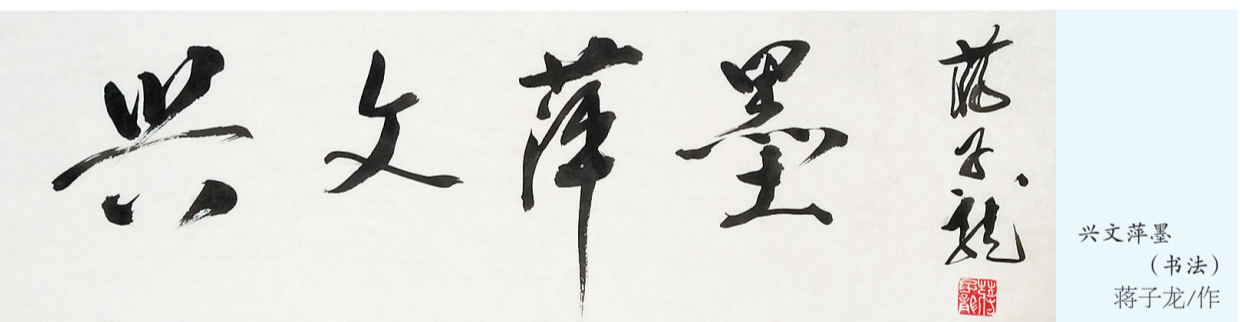 兴文萍墨
蒋子龙
兴文萍墨
（书法）
蒋子龙/作